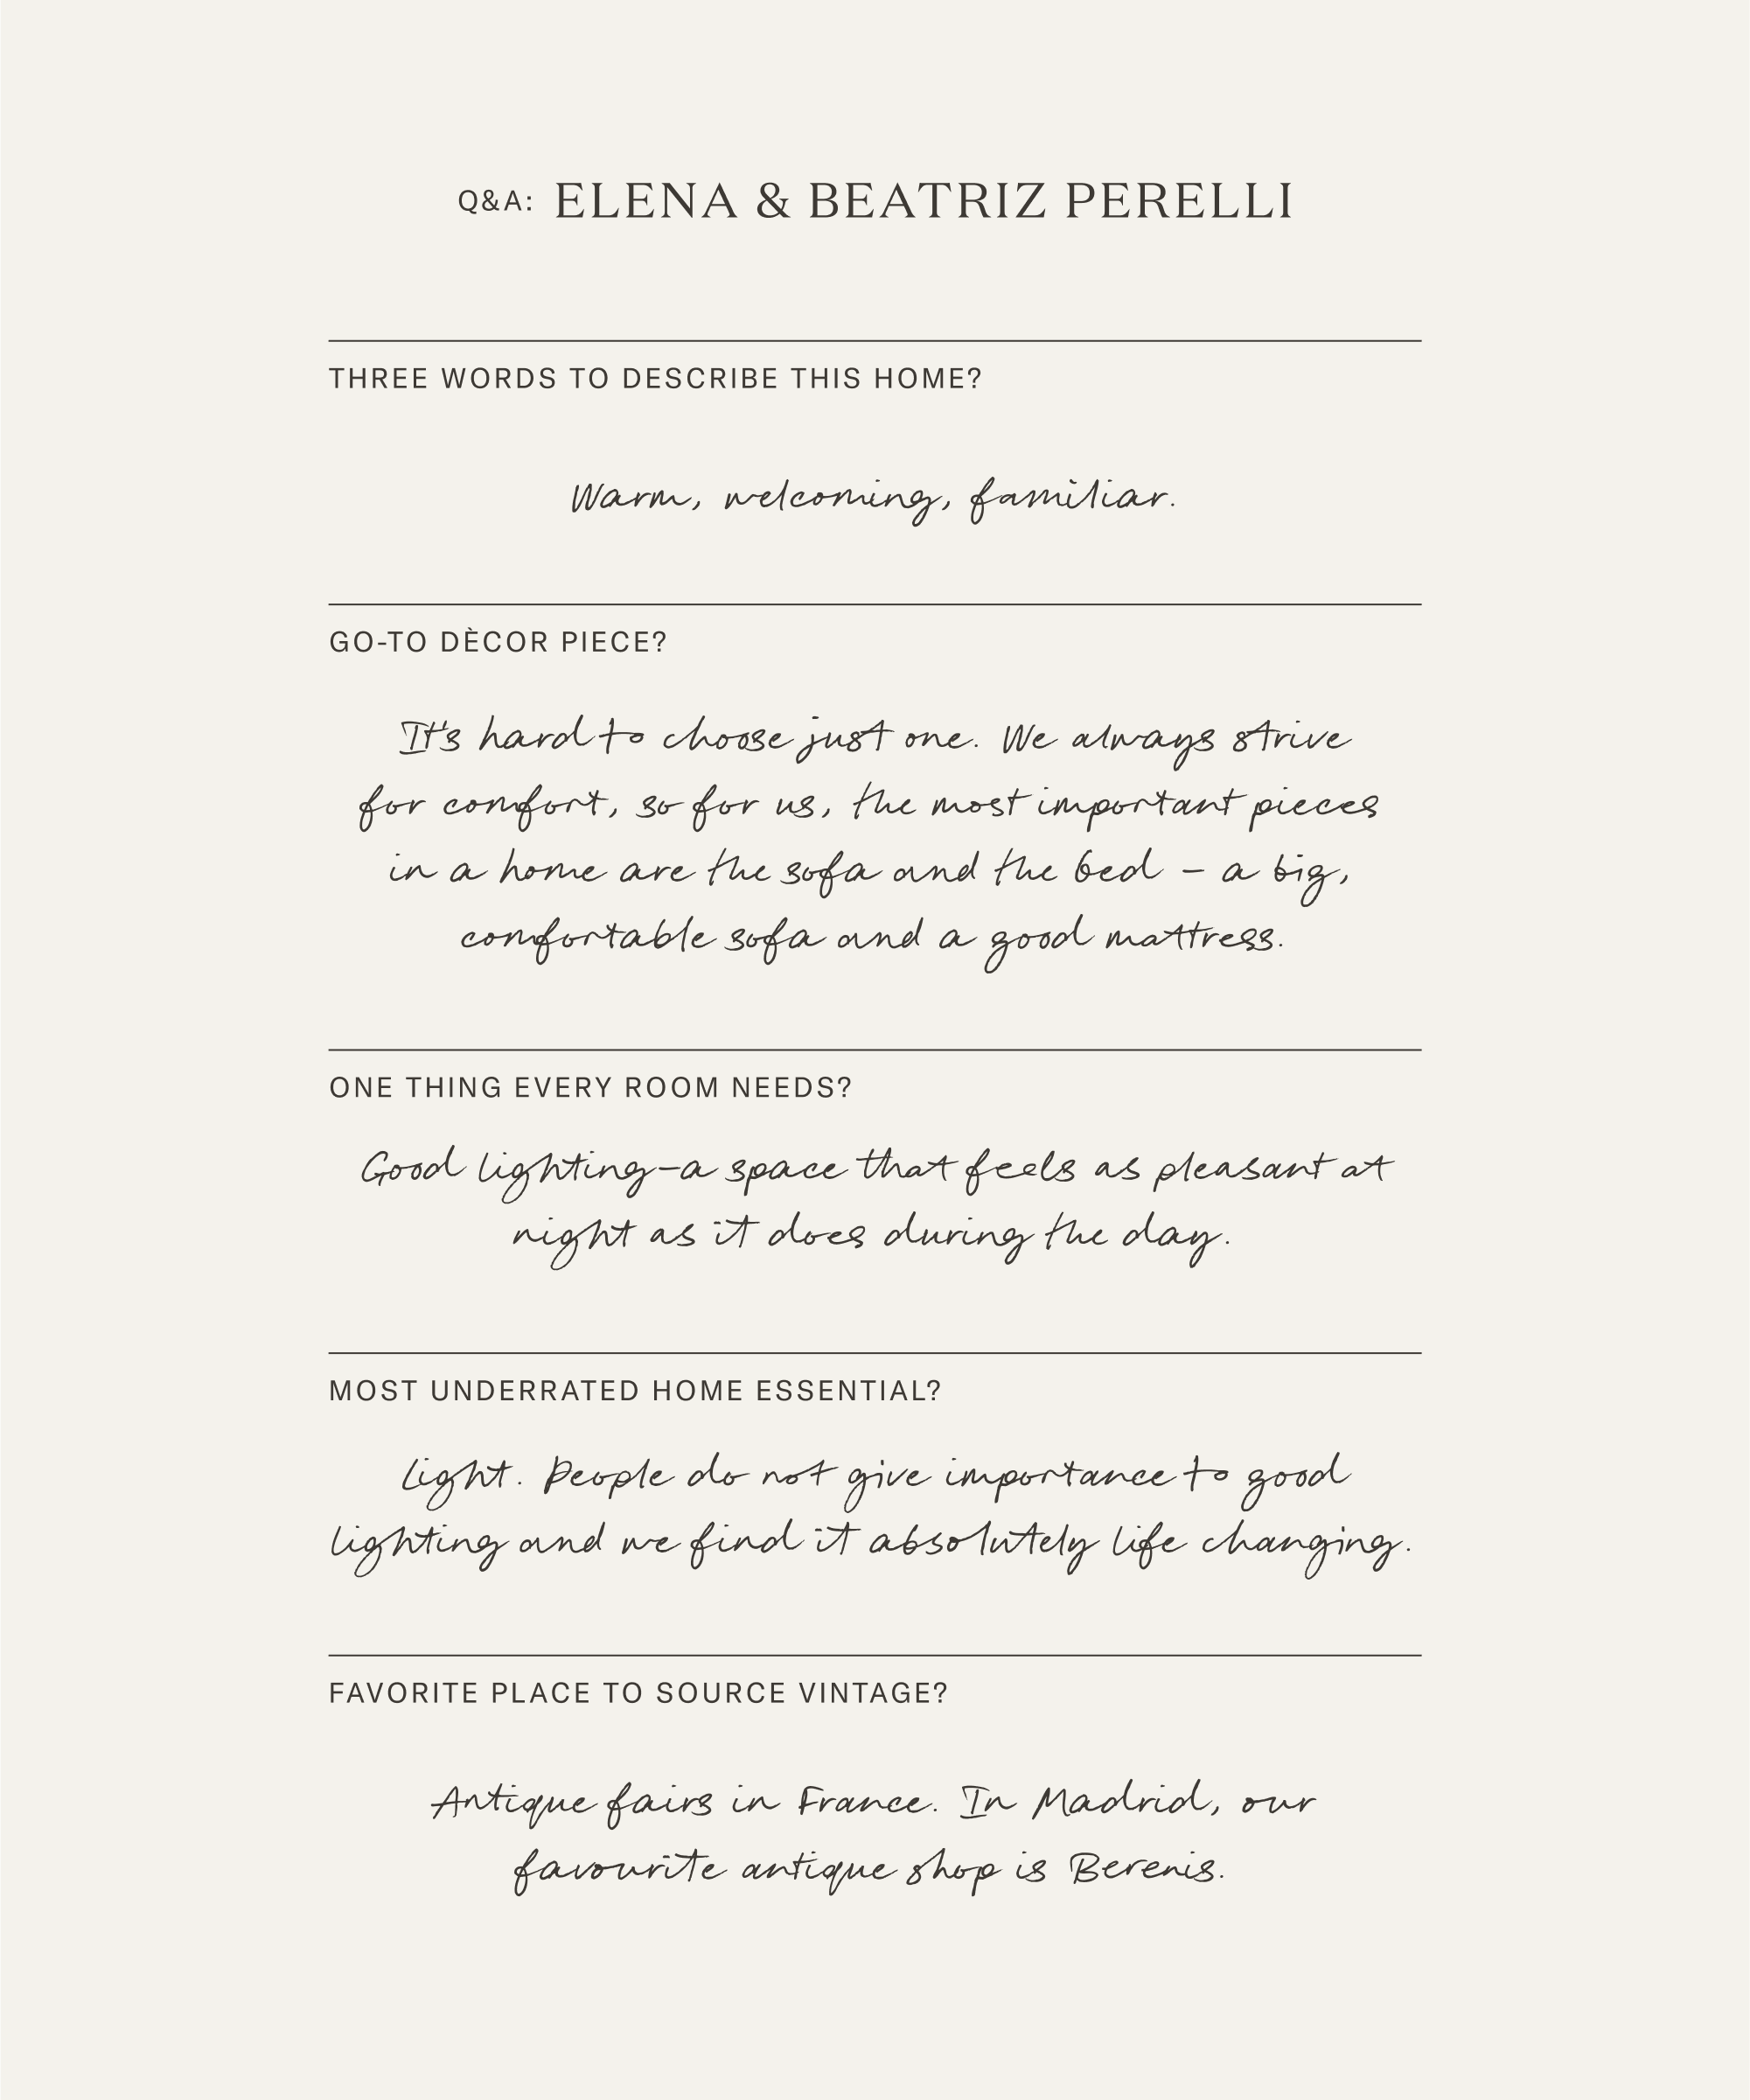 Q&A: ELENA & BEATRIZ PERELLI
THREE WORDS TO DESCRIBE THIS HOME?
Warm, welcoming, familiar.
GO-TO DÈCOR PIECE?
It's hard to choose just one. We always strive
for comfort, so for us, the most important pieces
in a home are the sofa and the bed – a big,
comfortable sofa and a good mattress.
ONE THING EVERY ROOM NEEDS?
Good lighting–a space that feels as pleasant at
night as it does during the day.
MOST UNDERRATED HOME ESSENTIAL?
Light. People do not give importance to good
lighting and we find it absolutely life changing.
FAVORITE PLACE TO SOURCE VINTAGE?
Antique fairs in France. In Madrid, our
favourite antique shop is Berenis.